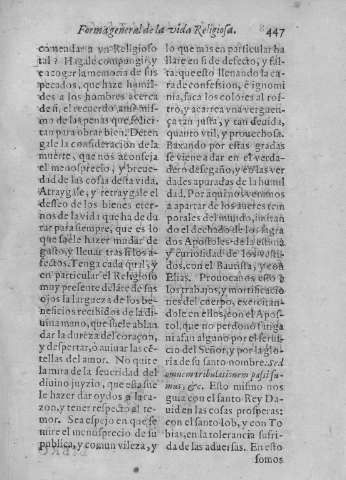 Forma general de la vida Religiosa. 447
comendar a vn Religioso
tal? Hagale compungir, y
encogar la memoria de sus
pecados, que haze humil-
des a los hombres acerca
de si. el recuerdo ansi mis-
mo de las penas que solici-
tan para obrar bien. Deten
gale la consideracion de la
muerte, que nos aconseja
el menosprecio, y breue-
dad de las cosas desta vida.
Atraygale, y retraygale el
desseo de los bienes eter-
nos de la vida que ha de du
rar para siempre, que es lo
que suele hazer mudar de
gusto, y lleuar tras si los a-
fectos. Tenga cada qual, y
en particular el Religioso
muy presente deláte de sus
ojos la largueza de los be-
neficios recibidos de la di-
uina mano, que suele ablan
dar la dureza del coraçon,
y despertar, ò auiuar las cē-
tellas del amor. No quite
la mira de la seueridad del
diuino juyzio, que esta sue
le hazer dar oydos a la ra-
zon, y tener respecto al te-
mor. Sea espejo en que se
mire el menosprecio de su
publica, y comun vileza, y
lo que mas en particular ha
llare en si de defecto, y fal-
ta: que esto llenando la ca-
ra de confession, è ignomi
nia, saca los colores al ros-
tro, y acarrea vna verguen-
ça tan justa, y tan deuida,
quanto vtil, y prouechosa.
Baxando por estas gradas
se viene a dar en el verda-
dero desegaño, y en las ver
dades apuradas de la humil
dad. Por aqui nos venimos
a apartar de los aueres tem
porales del mundo, imitan
do el dechado de los sagra
dos Apostoles: de la estima
y curiosidad de los vesti-
dos, con el Bautista, y con
Elias. Prouocanos esto a
los trabajos, y mortificacio
nes del cuerpo, exercitan-
dole en ellos, con el Apos-
tol, que no perdonò fatiga
ni afan alguno por el serui-
cio del Señor, y por la glo-
ria de su santo nombre. Sed
omnem tribulationem passi su-
mus, &c. Esto mismo nos
guia con el santo Rey Da-
uid en las cosas prosperas:
con el santo Iob, y con To
bias, en la tolerancia sufri-
da de las aduersas. En esto
somos